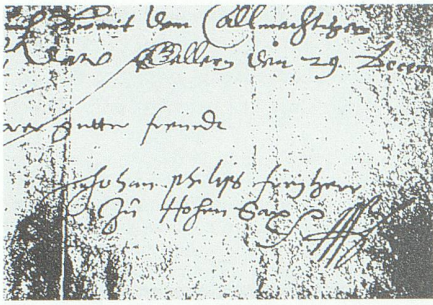 den Allmechtigen
den 29. Decem
gutter freundt
Johan Philips freyherr
Zů Hohen Sax